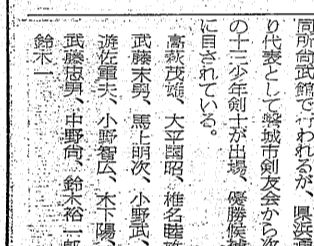 同所尚武館で行われるが、県浜通
り代表として磐城市剣友会から次
の十三少年剣士が出場、優勝候補
に目されている。
高萩茂雄、大平国昭、椎名睦
武藤末男、馬上明次、小野武、
遊佐軍夫、小野智広、木下陽、
武藤忠男、中野尚、鈴木裕一郎
鈴木一